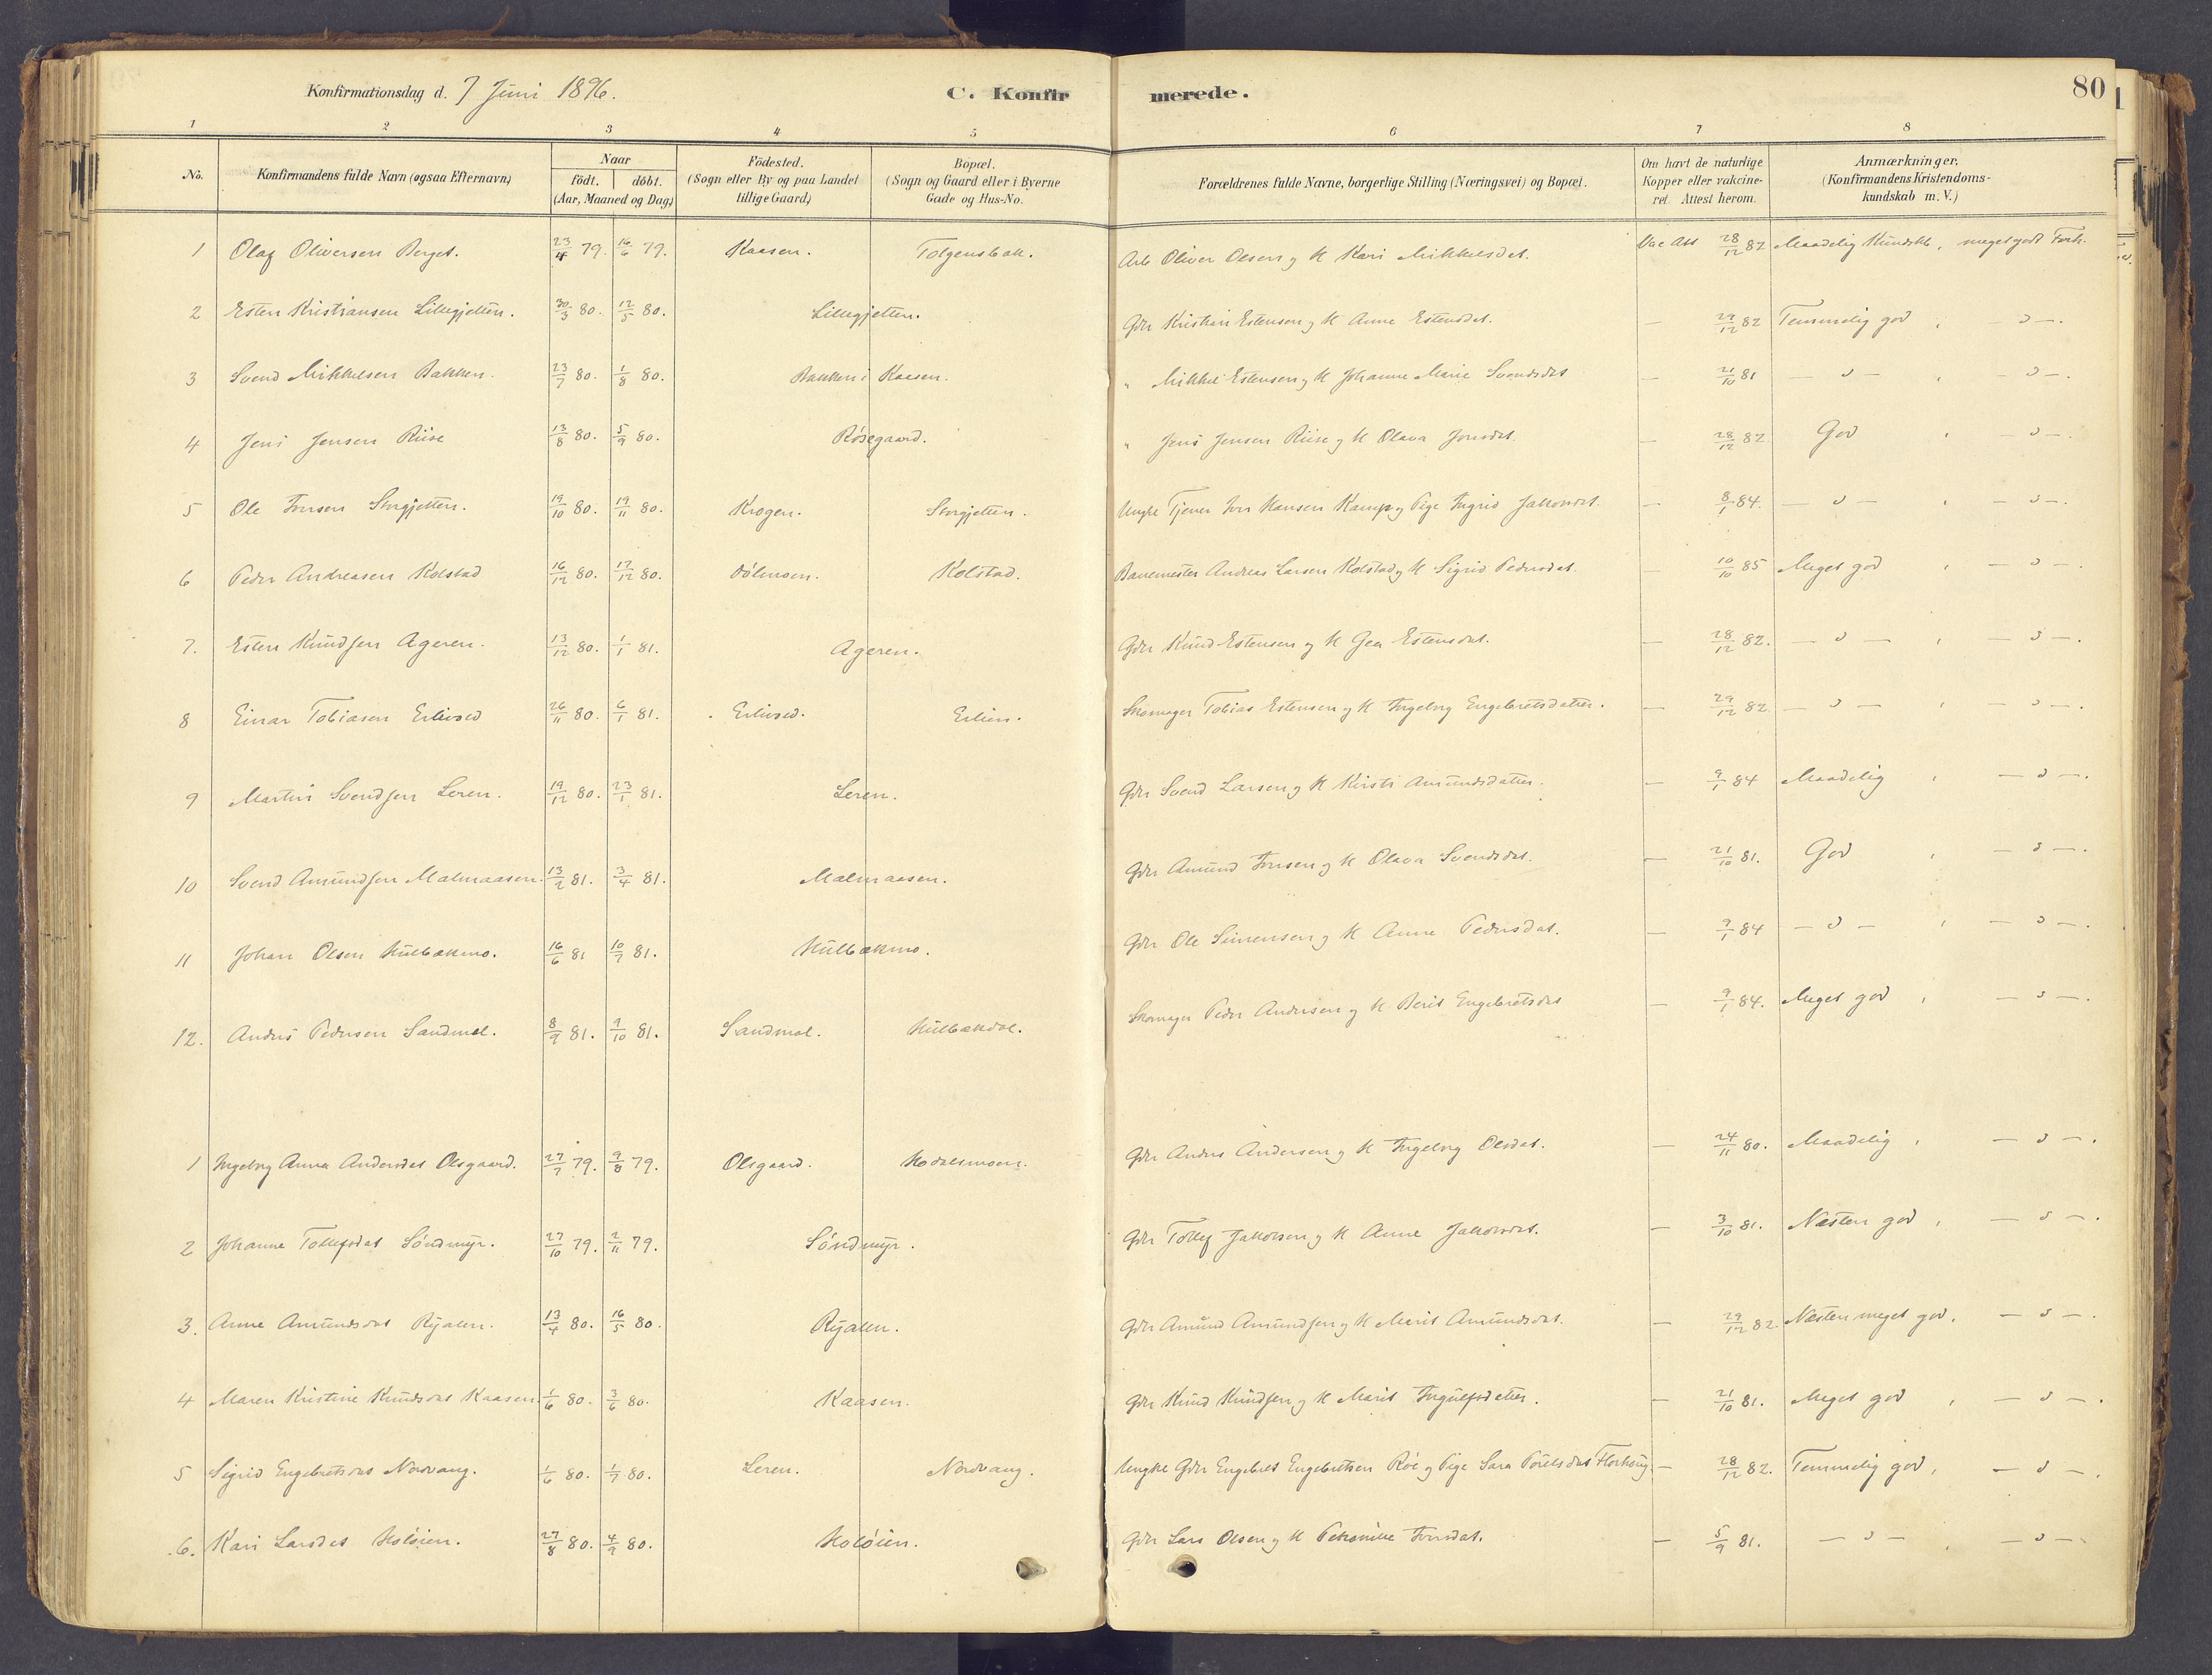 Konfirmationsdag d. 7 Juni 1896. C. Konfirmerede. 80
1 2 3 4 5 6 7 8
No. Konfirmandens fulde Navn (ogsaa Efternavn) Naar födt. döbt. (Aar, Maaned og Dag) Födested. (Sogn eller By og paa Landet tillige Gaard) Bopæl. (Sogn og Gaard eller i Byerne Gade og Hus-No. Forældrenes fulde Navne, borgerlige Stilling (Næringsvei) og Bopæl. Om havt de naturlige Kopper eller vakcineret. Attest herom. Anmærkninger. (Konfirmandens Kristendomskundskab m. V.)
1 Olaf Oliversen Berget. 23/4 79. 16/6 79. Kaasen. Tolgensbak. Arb Oliver Olsen og K Kari Mikkelsdat. Vac Att 28/12 82 Maadelig Kundsk, meget godt Forh.
2 Esten Kristiansen Lillegjetten. 30/3 80. 12/5 80. Lillegjetten. Gdr Kristian Estensen og K Anne Estensdat. — 29/12 82 Temmelig god, — " —.
3 Svend Mikkelsen Bakken. 23/7 80. 1/8 80. Bakken i Kaasen. " Mikkel Estensen og K Johanne Marie Svendsdat — 21/10 81 — " —, — " —.
4 Jens Jensen Riise 13/8 80. 5/9 80. Rösegaard. " Jens Jensen Riise og K Olava Jonsdat. — 28/12 82 God, — " —.
5 Ole Iversen Storgjetten. 19/10 80. 19/11 80. Krogen. Storgjetten. Ungke Tjener Iver Hansen Kamp og Pige Ingrid Jakobsdt. — 8/1 84. — " —, — " —.
6 Peder Andreasen Kolstad 16/12 80. 17/12 80. Kolstad. Banemester Andreas Larsen Kolstad og K Sigrid Pedersdat. — 10/10 85 Meget god, — " —.
7. Esten Knudsen Ageren. 13/12 80. 1/1 81. Ageren. Gdr Knud Estensen og K Gea Estensdat. — 28/12 82. — " —, — " —.
8 Einar Tobiasen Erlivsed 26/11 80. 6/1 81. Erlivsed. Erlien. Skomager Tobias Estensen og K Ingebrg Engebretsdatter. — 29/12 82. — " —, — " —.
9 Martin Svendsen Leren. 19/12 80. 23/1 81. Leren. Gdr Svend Larsen og K Kirsti Amundsdatter. — 9/1 84 Maadelig, — " —.
10 Svend Amundsen Malmaasen. 13/2 81. 3/4 81. Malmaasen. Gdr Amund Iversen og K Olava Svendsdat. — 21/10 81. God, — " —.
11 Johan Olsen Hulbakmo. 16/6 81 10/7 81. Hulbækmo. Gdr Ole Simensen og K Anne Pedersdat. — 9/1 84 — " —, — " —.
12. Anders Pedersen Sandmel. 8/9 81. 9/10 81. Sandmæl. Hulbækdal. Skomager Peder Andersen og K Berit Engebretsdat — 9/1 84. Meget god, — " —.
1 Ingebrg Anna Andersdat Olsgaard. 27/7 79. 9/8 79. Olsgaard. Hodalsmoen. Gdr Anders Andersen og K Ingebrg Olsdat. — 24/11 80. Maadelig, — " —.
2 Johanne Tollefsdat Söndmyr. 27/10 79. 2/11 79. Söndmyr. Gdr Tollef Jakobsen og K Anne Jakobsdat. — 3/10 81. Næsten god, — " —.
3. Anne Amundsdat Ryalen. 13/4 80. 16/5 80. Ryalen. Gdr Amund Amundsen og K Marit Amundsdat. — 29/12 82. Næsten meget god, — " —.
4 Maren Kristine Knudsdat Kaasen. 1/6 80. 3/6 80. Kaasen. Gdr Knud Knudsen og K Marit Ingulfsdatter. — 21/10 81. Meget god, — " —.
5 Sigrid Engebretsdat Nordvang. 1/6 80. 1/7 80. Leren. Nordvang. Ungke Gdr Engebret Engebretsen Röe og Pige Sara Pöulsdat — 28/12 82. Temmelig god, — " —.
6. Kari Larsdat Holöien. 27/8 80. 4/9 80. Holöien. Gdr Lars Olsen og K Petronille Iversdat. — 5/9 81. — " —, — " —